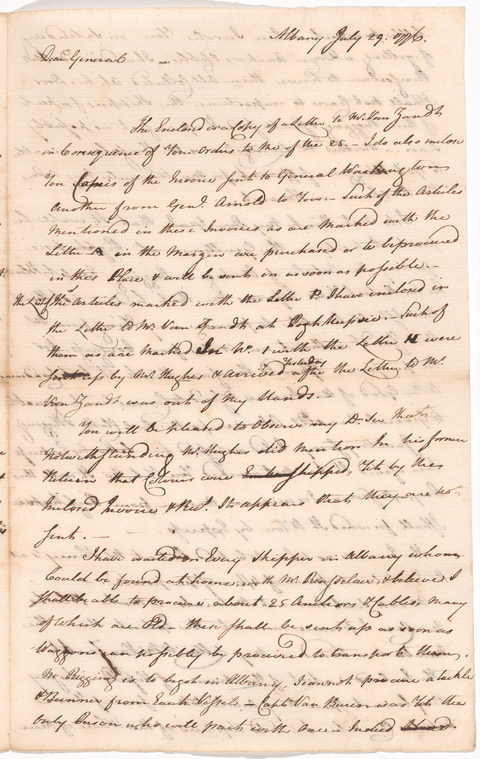 Albany July 29. 1776.
Dear General
The Inclosed is a Copy of a Letter to Mr. Van Zandt
in Consequence of Your Orders to Me of the 25. – I do also inclose
You Copies of the Invoice sent to General Washington
Another from Genl. Arnold to You – Such of the Articles
Mentioned in these Invoices as are Marked with the
Letter A in the Margin are purchased or to be procured
in this Place & will be sent on as soon as possible. –
the List of the Articles marked with the Letter P. I have inclosed in
the Letter to Mr. Van Zandt at Poghkeepsie – Such of
them as are Marked In No. 1 with the Letter H were
sent up by Mr. Hughes & Arrived Yesterday after the Letter to Mr.
Van Zandt was out of My Hands.
You will be pleased to Observe my Dr. Sir that
Notwithstanding Mr. Hughes did Mention In his former
Return that Colours were shipped, Yet by the
Inclosed Invoice & Rect. It appears that they are not
sent. –
I have waited on Every Skipper in Albany whom
Could be found at home with Mr. Renselaer & believe I
shall be able to procure about 25 Anchors & Cables, many
of which are Old – these shall be sent up as soon as
Waggons can possibly be procured to transport them.
No Rigging is to be got in Albany. I cannot procure a tackle
& Hawser from Each Vessel – Capt. Van Buren is as Yet the
only Person who will part with One – Indeed